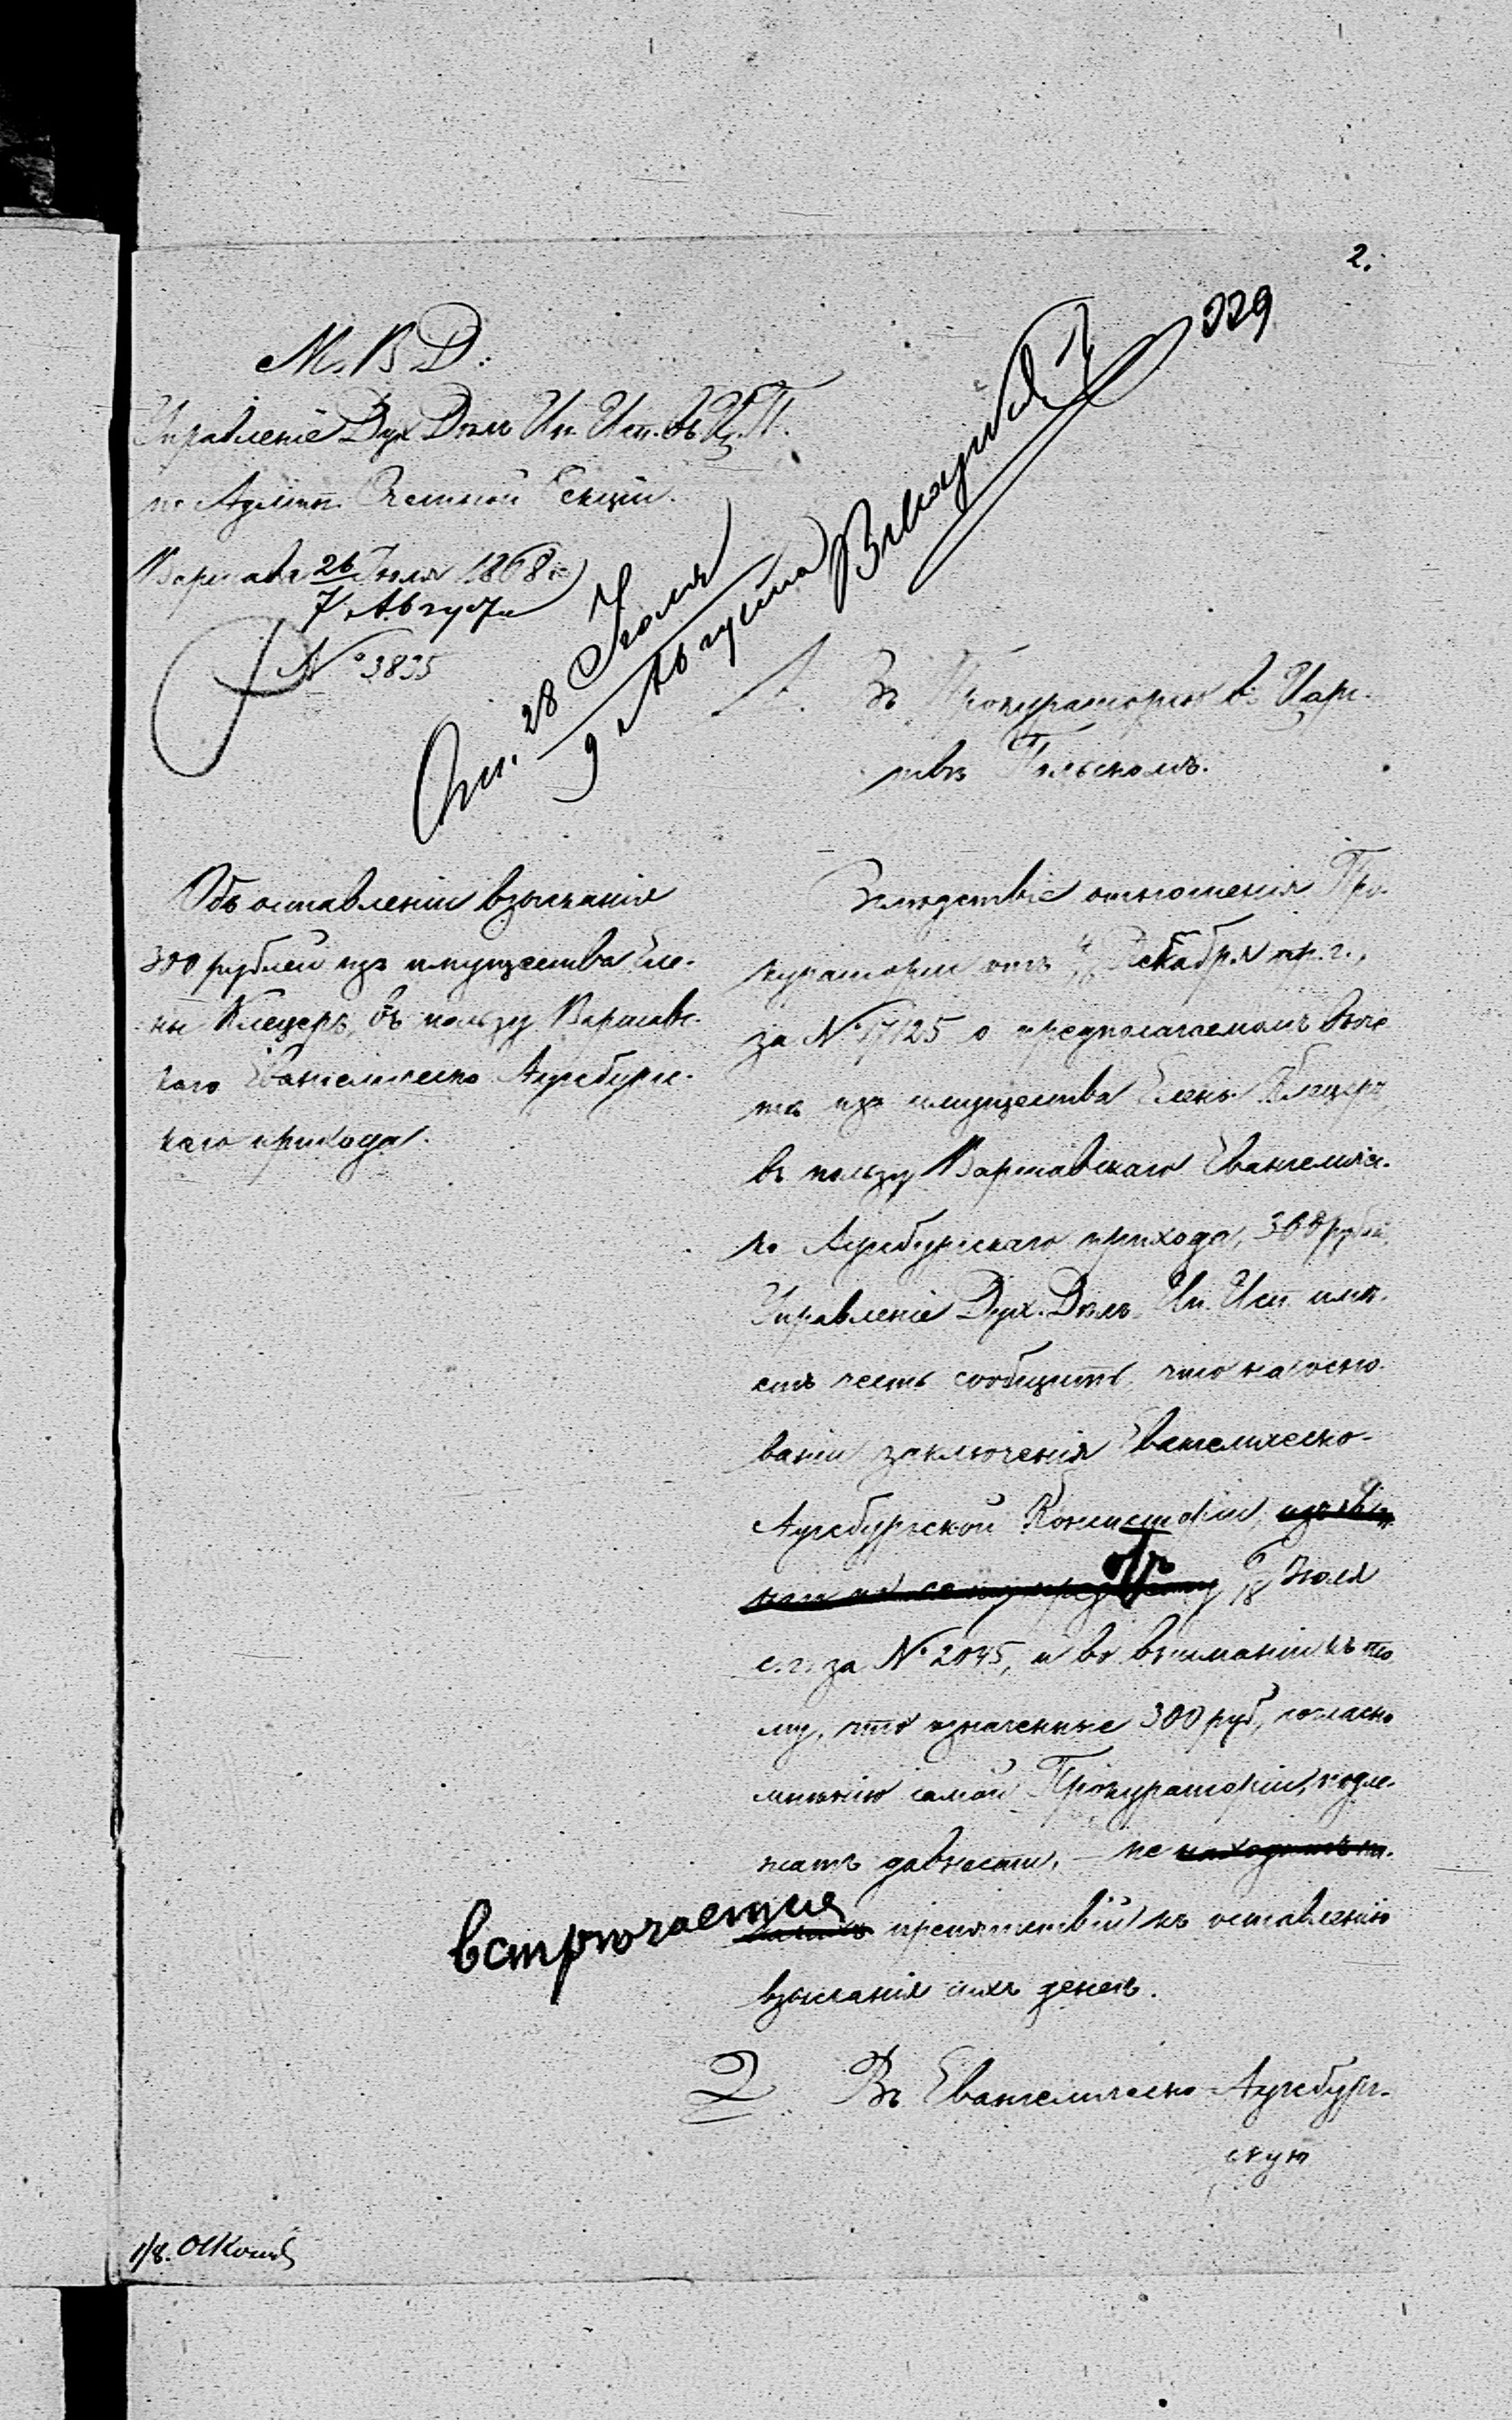 2.
М. В Д:
Управленіе Дух Дѣлъ Ин. Исп. въ Ц. П.
по Админ. Счетной Секціи.
Варшава 26 Іюля 1868 г.
7 Августа
№ 3835
Отп. 28 Іюля
9 Августа
229
1. Въ Прокураторію въ Цар-
ствѣ Польскомъ.
Объ оставленіи взысканія
300 рублей изъ имущества Еле-
ны Клецеръ, въ пользу Варшавс-
каго Евангелическо Аугсбургс-
каго прихода.
Вслѣдствіе отношенія Про-
кураторіи отъ Декабря пр. г.,
за № 17125 о предполагаемомъ выче
тѣ изъ имущества Елены Клецеръ
въ пользу Варшавскаго Евангеличес-
ко Аугсбургскаго прихода, 300 рублей,
Управленіе Дух. Дѣлъ Ин. Исп. имѣ-
етъ честь сообщить, что на осно-
ваніи заключенія Евангелическо-
Аугсбургской Консисторіи,
отъ 6/18 Іюля
с. г. за № 2045, и во вниманіи къ то
му, что означенные 300 руб, согласно
мнѣнію самой Прокураторіи, подле-
жатъ давности, — не находитъ ни-
встрѣчается
какихъ препятствій къ оставленію
взысканія сихъ денегъ.
2. Въ Евангелическо-Аугсбург-
скую
1/8.